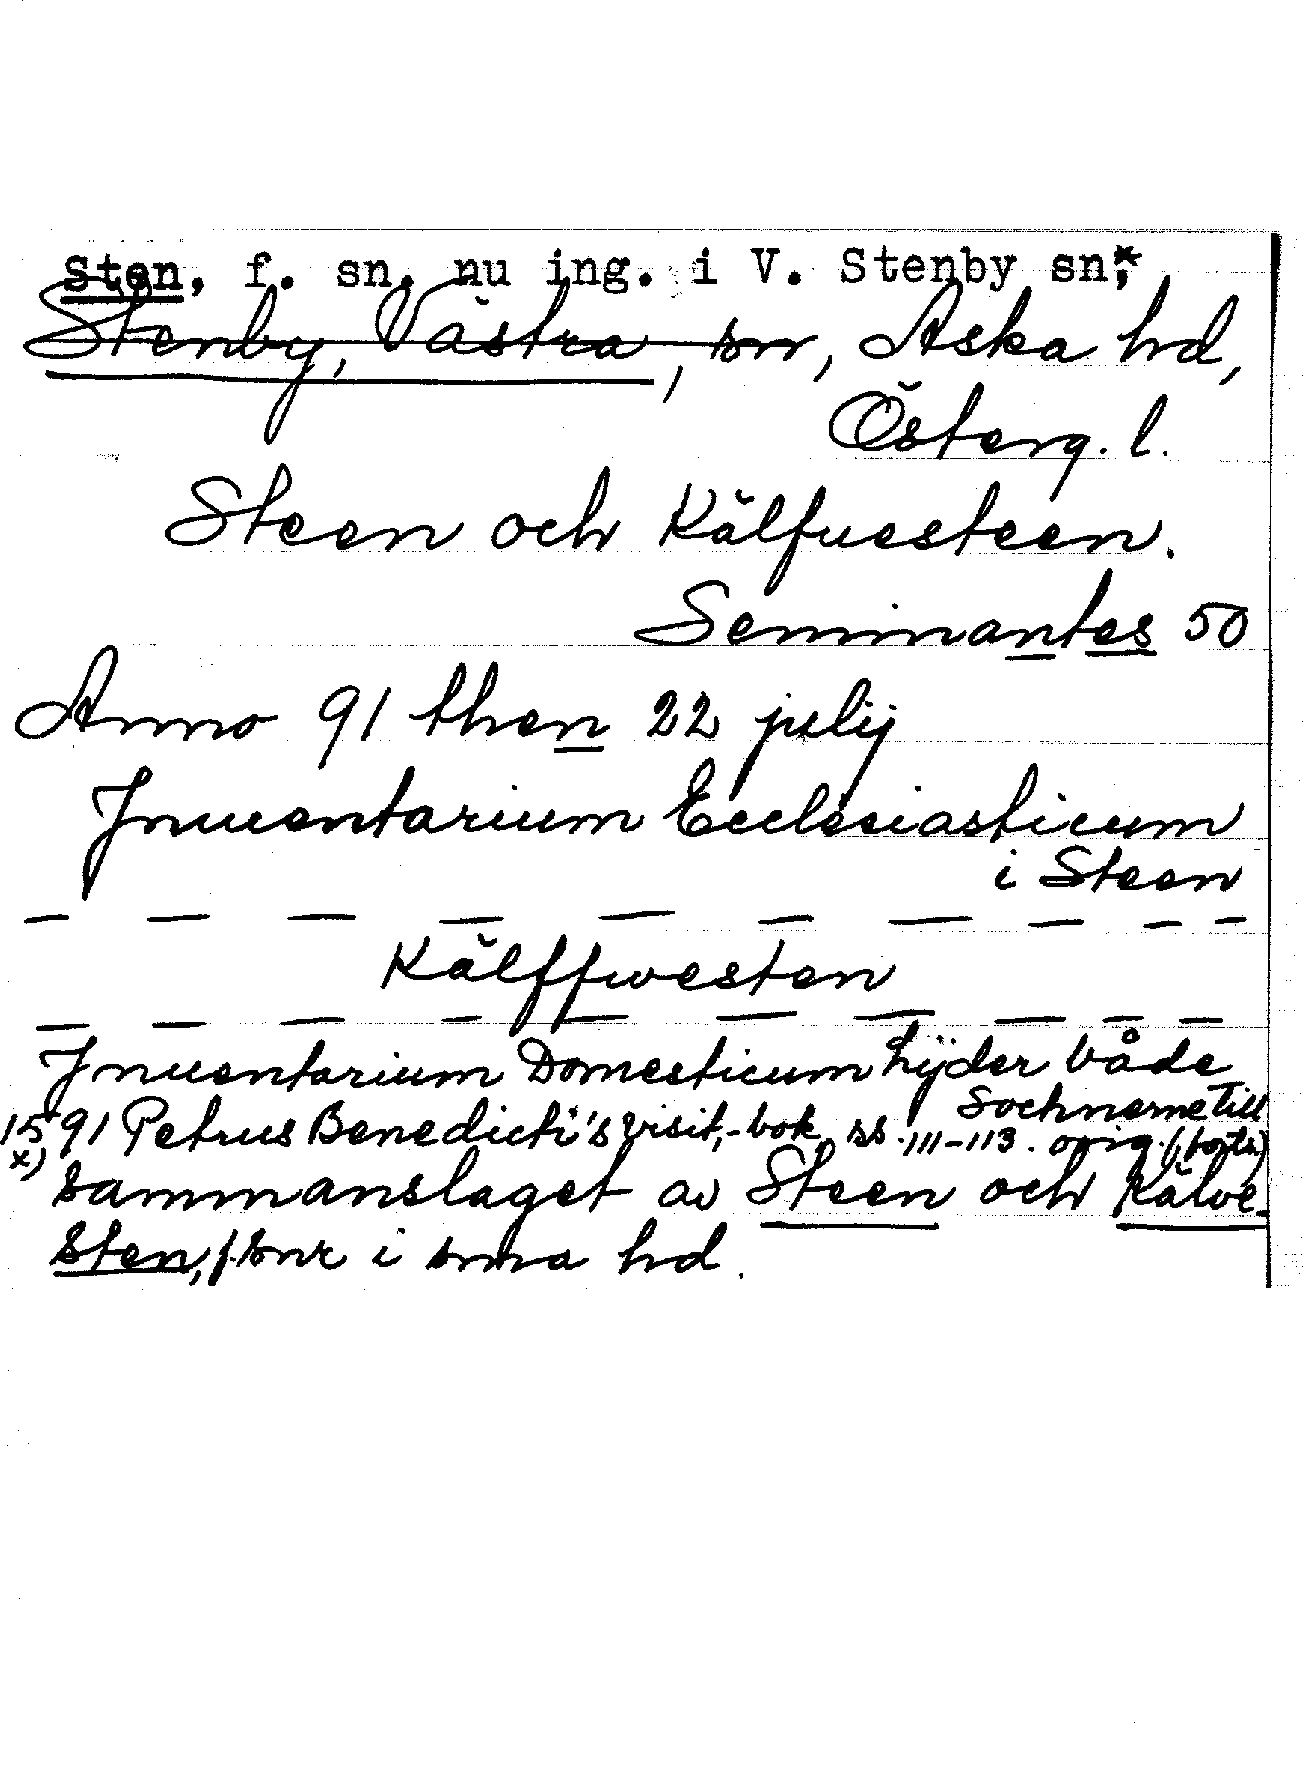 Sten, f. sn, nu ing. i V. Stenby sn,*
Stenby, Västra, sn, Aska hd,
Österg. l.
Steen och Kälfuesteen.
Seminantes 50
Anno 91 then 22 julij
Jnuentarium Ecclesiasticum
i Steen
— — — — — — — — — —
Kälffwesten
— — — — — — — — — —
Jnuentarium Domesticum hijder både
Sochnerne Till
1591 Petrus Benedicti's visit,-bok ss. 111-113. orig. (forts.)
x) Sammanslaget av Steen och Kälve-
Sten, f. snr i sma hd.